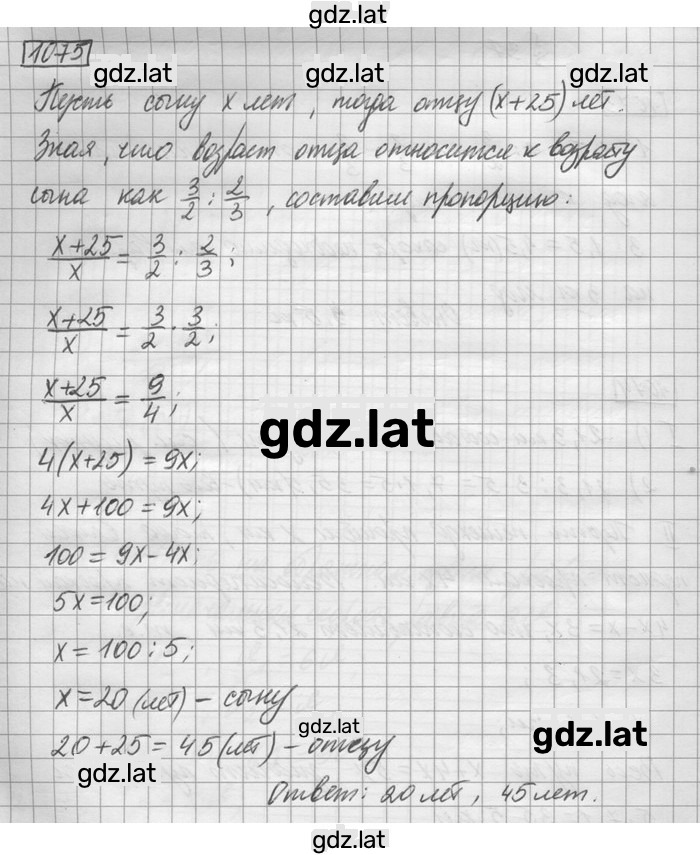 gdz.lat
1075
gdz.lat gdz.lat
Пусть сыну x лет, тогда отцу (x+25) лет.
Зная, что возраст отца относится к возрасту
сына как 3/2 : 2/3, составим пропорцию:
(x+25)/x = 3/2 : 2/3;
(x+25)/x = 3/2 · 3/2;
(x+25)/x = 9/4;
gdz.lat
4(x+25) = 9x;
4x+100 = 9x;
100 = 9x-4x;
5x=100;
x = 100 : 5;
x = 20 (лет) - сыну
gdz.lat gdz.lat
20+25 = 45 (лет) - отцу
gdz.lat
Ответ: 20 лет, 45 лет.
gdz.lat